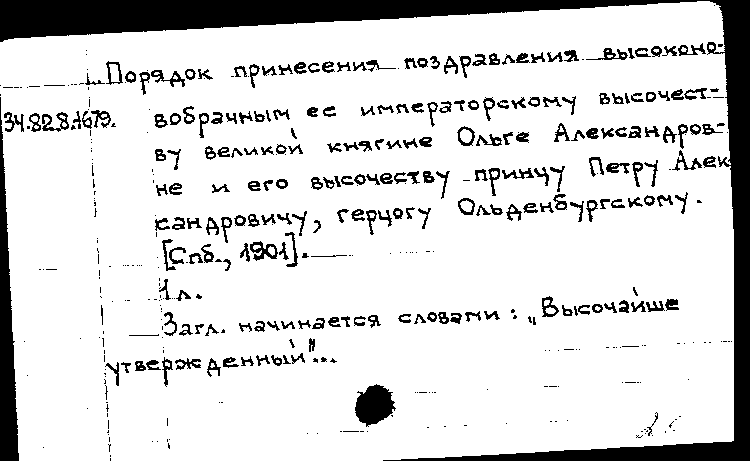 ...Порядок принесения поздравления высоконо-
34.82.8.1679. вобрачным ее императорскому высочест-
ву великой княгине Ольге Александров-
не и его высочеству принцу Петру Алек
сандровичу, герцогу Ольденбургскому.
[Спб., 1901].
1 л.
Загл. начинается словами: „Высочайше
утвержденный"...